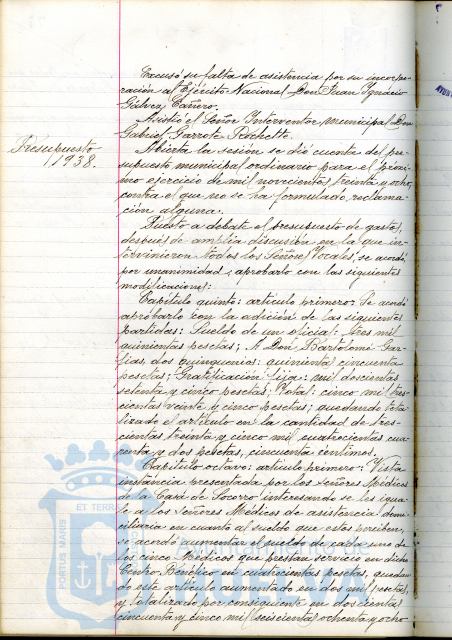 Excusó su falta de asistencia por su incorpo-
ración al Ejército Nacional Don Juan Ygnacio
Gálvez Cañero.
Asistió el Señor Interventor municipal Don
Gabriel Garrote
Presupuesto
1938.
Abierta la sesión se dió cuenta del pre-
supuesto municipal ordinario para el próxi-
mo ejercicio de mil novecientos treinta y ocho,
contra el que no se ha formulado reclama-
ción alguna.
Puesto a debate el presupuesto de gastos,
después de amplia discusión en la que in-
tervinieron todos los Señores Vocales, se acordó
por unanimidad, aprobarlo con las siguientes
modificaciones:
Capítulo quinto: artículo primero: Se acordó
aprobarlo con la adición de las siguientes
partidas: Sueldo de un oficial: tres mil
quinientas pesetas; A Don Bartolomé
dos quinquenios: quinientas cincuenta
pesetas; Gratificación fija: mil doscientas
setenta y cinco pesetas; Total: cinco mil tres-
cientas veinte y cinco pesetas; quedando tota-
lizado el artículo en la cantidad de tres-
cientas treinta y cinco mil cuatrocientas cua-
renta y dos pesetas, cincuenta céntimos.
Capítulo octavo: artículo primero: Vista
instancia presentada por los Señores Médicos
de la Casa de Socorro interesando se les igua-
le a los Señores Médicos de asistencia domi-
ciliaria en cuanto al sueldo que estos perciben,
se acordó aumentar el sueldo de cada uno de
los cinco Médicos que prestan servicio en dicho
Centro Benéfico en cuatrocientas pesetas, quedan-
do este artículo aumentado en dos mil pesetas
y totalizado por consiguiente en doscientas
cincuenta y cinco mil seiscientas ochenta y ocho
ET TERRA
PORTUS MARIS
Ayuntamiento de